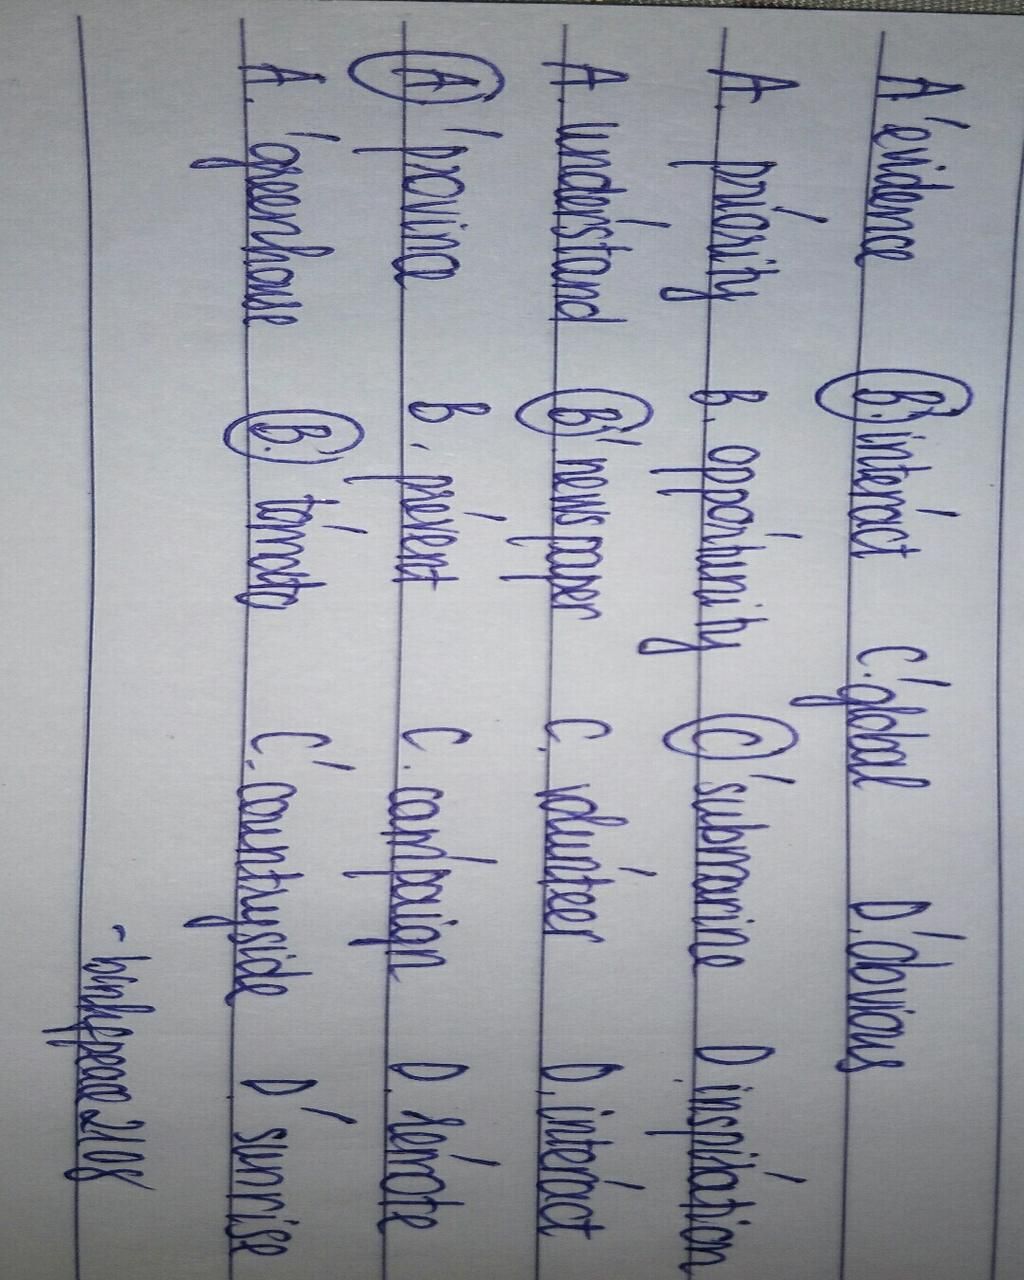 A. 'evidence B. inte'ract C. 'global D. 'obvious
A. pri'ority B. oppor'tunity C. 'submarine D. inspi'ration
A. under'stand B. 'newspaper C. volun'teer D. inter'act
A. 'province B. pre'vent C. cam'paign D. re'mote
A. 'greenhouse B. to'mato C. 'countryside D. 'sunrise